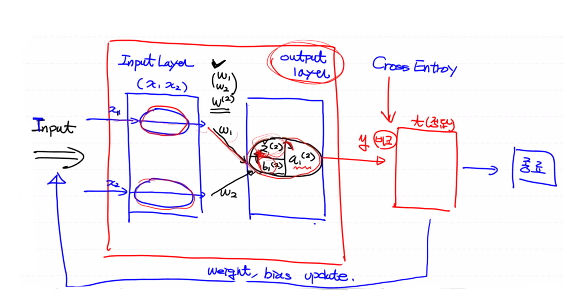 Input Layer
(x₁ x₂)
(w₁
w₂)
w⁽²⁾
output
layer
Cross Entropy
x₁
w₁
Input
z₁⁽²⁾
b₁⁽²⁾
a₁⁽²⁾
y
비교
t(정답)
종료
x₂
w₂
weight, bias update.